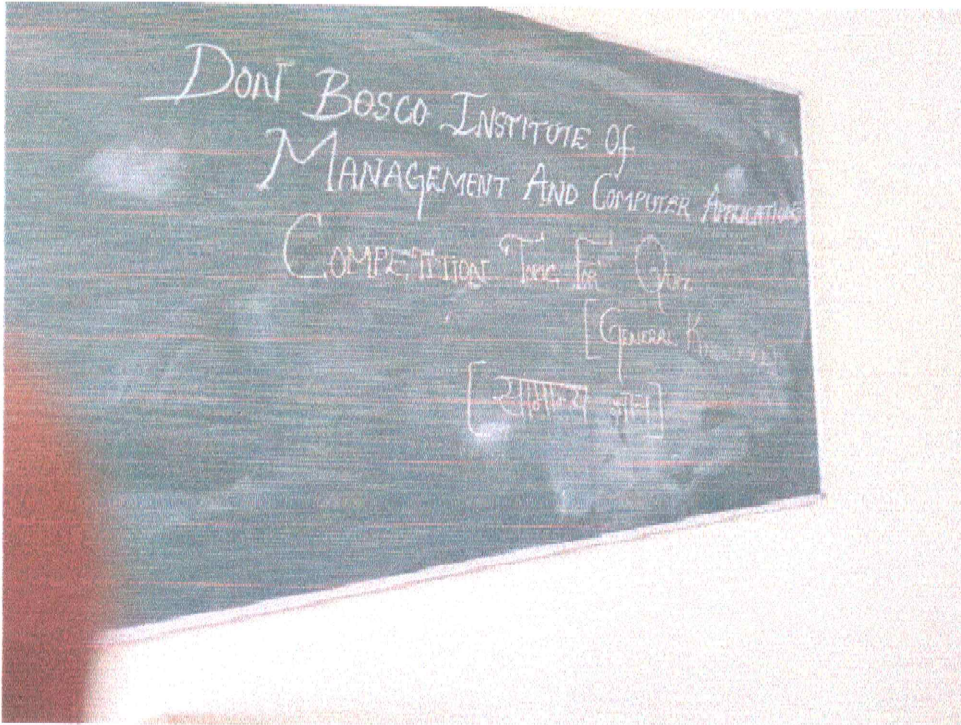 DONT BOSCO INSTITUTE OF
MANAGEMENT AND COMPUTER APPLICATIONS
COMPETITION TOPIC FOR QUIZ
[GENERAL KNOWLEDGE]
[सामान्य ज्ञान]